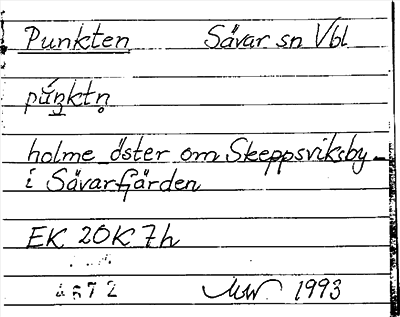 Punkten Sävar sn Vbl
púŋktn̥
holme öster om Skeppsviksby-
i Sävarfjärden
EK 20K 7h
4672 MW 1993